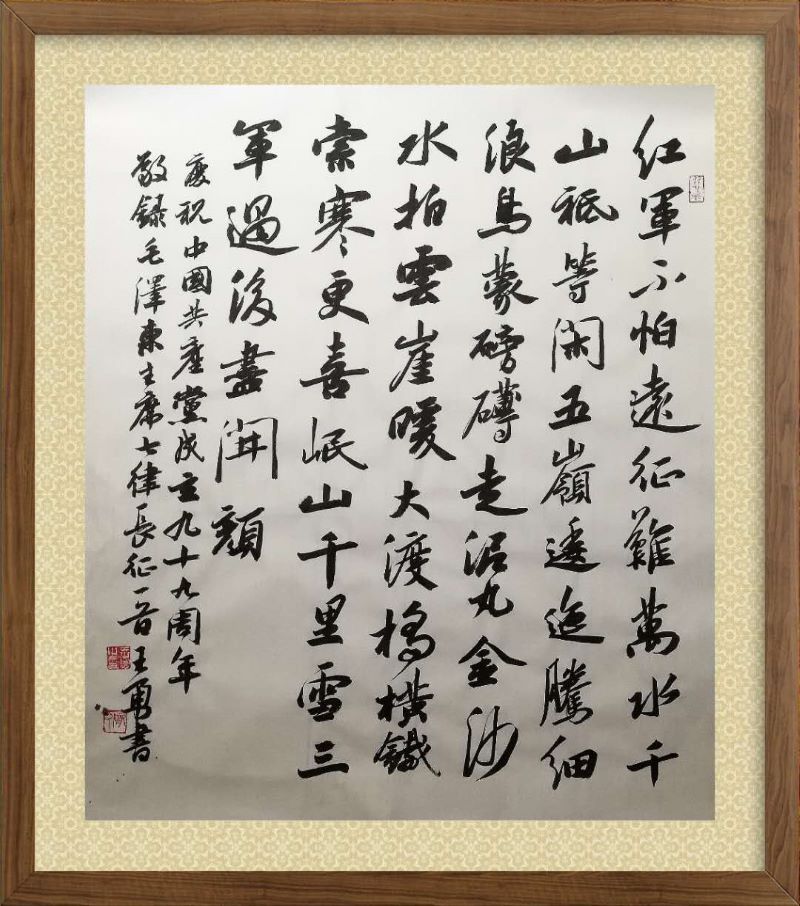 红軍不怕遠征難萬水千
山祗等閑五嶺逶迤騰細
浪烏蒙磅礴走泥丸金沙
水拍雲崖暖大渡橋橫鐵
索寒更喜岷山千里雪三
軍過後盡開顔
慶祝中國共產黨成立九十九周年
敬録毛澤東主席七律長征一首王勇書